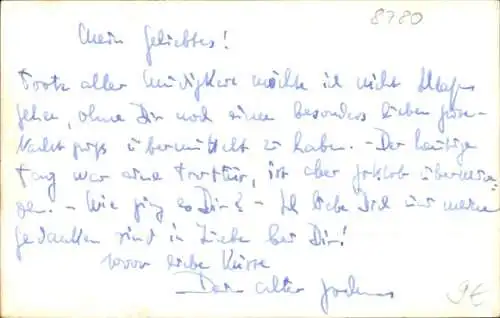 8780
Mein Geliebtes!
Trotz aller Müdigkeit möchte ich nicht schlafen
gehen, ohne Dir noch einen besonders lieben gute-
Nacht gruß übermittelt zu haben. - Der heutige
Tag war eine Tortur, ist aber gottlob überwun-
den. - Wie ging es Dir? - Ich liebe Dich und meine
Gedanken sind in Liebe bei Dir!
1000 liebe Küsse
Dein alter
9€